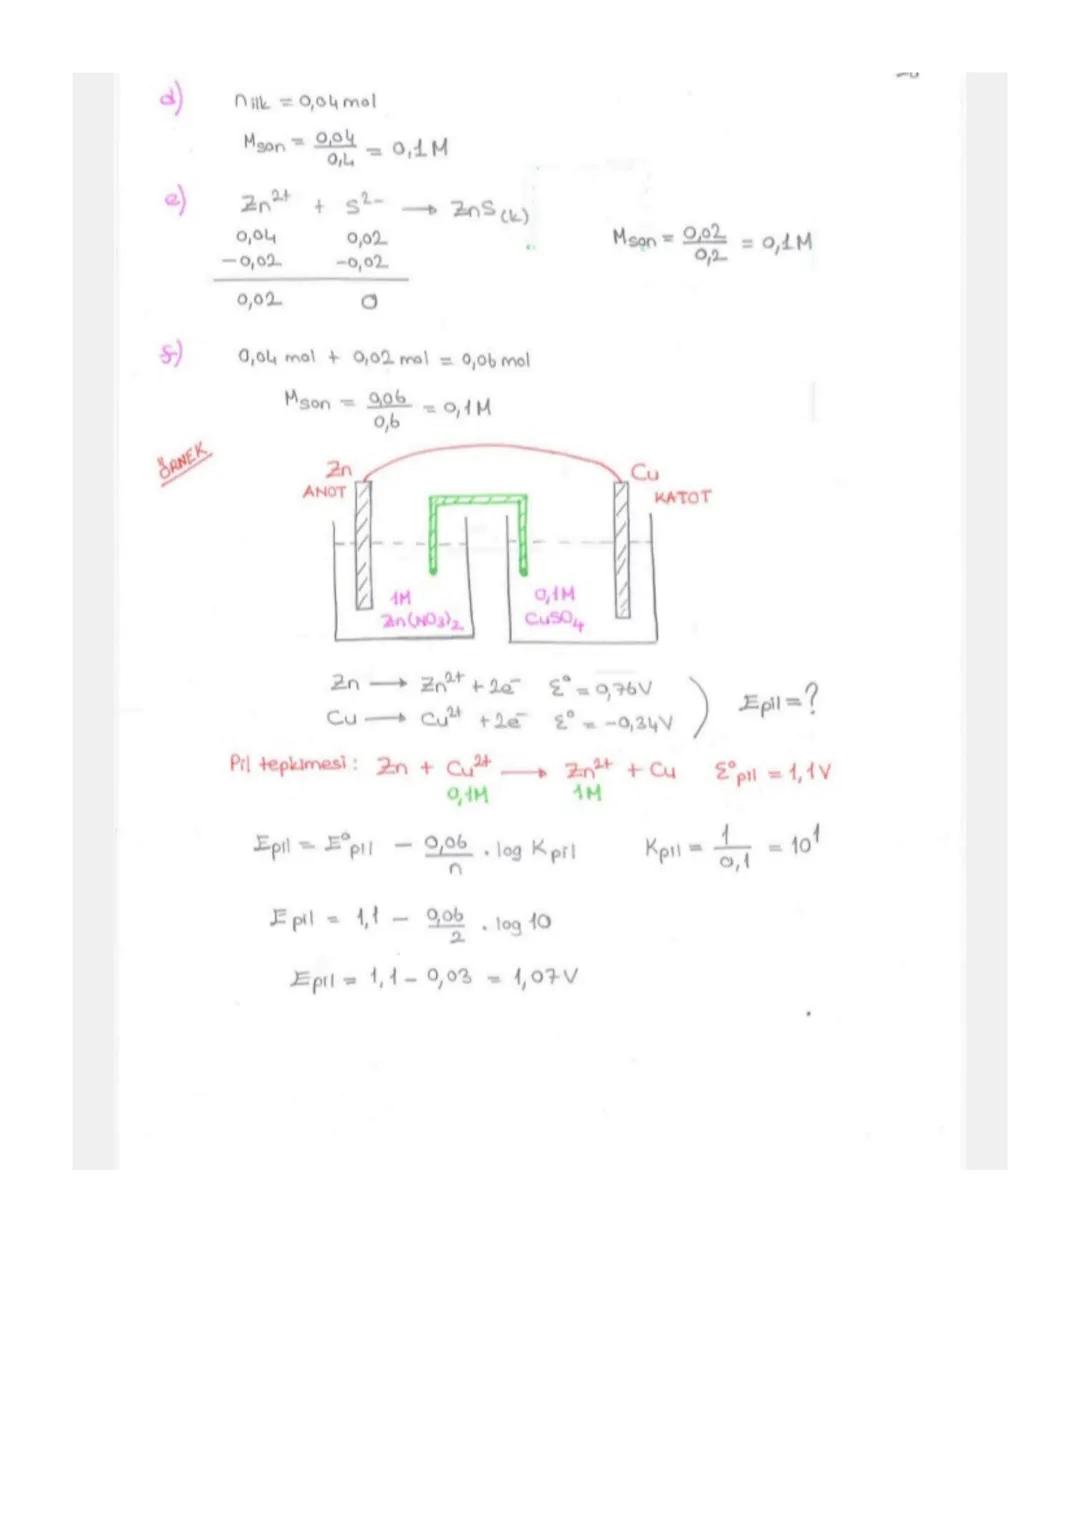 d) nilk = 0,04 mol
Mson = 0,04 / 0,4 = 0,1 M
e) Zn²⁺ + S²⁻ → ZnS(k)
0,04 0,02
-0,02 -0,02
0,02 0
Mson = 0,02 / 0,2 = 0,1M
f) 0,04 mol + 0,02 mol = 0,06 mol
Mson = 0,06 / 0,6 = 0,1M
ÖRNEK
Zn Cu
ANOT KATOT
1M 0,1M
Zn(NO3)2 CuSO4
Zn → Zn²⁺ + 2e⁻ Ɛ° = 0,76V
Cu → Cu²⁺ + 2e⁻ Ɛ° = -0,34V ) Epil = ?
Pil tepkimesi: Zn + Cu²⁺ → Zn²⁺ + Cu Ɛ°pil = 1,1V
0,1M 1M
Epil = E°pil - 0,06 / n . log Kpil Kpil = 1 / 0,1 = 10¹
Epil = 1,1 - 0,06 / 2 . log 10
Epil = 1,1 - 0,03 = 1,07V